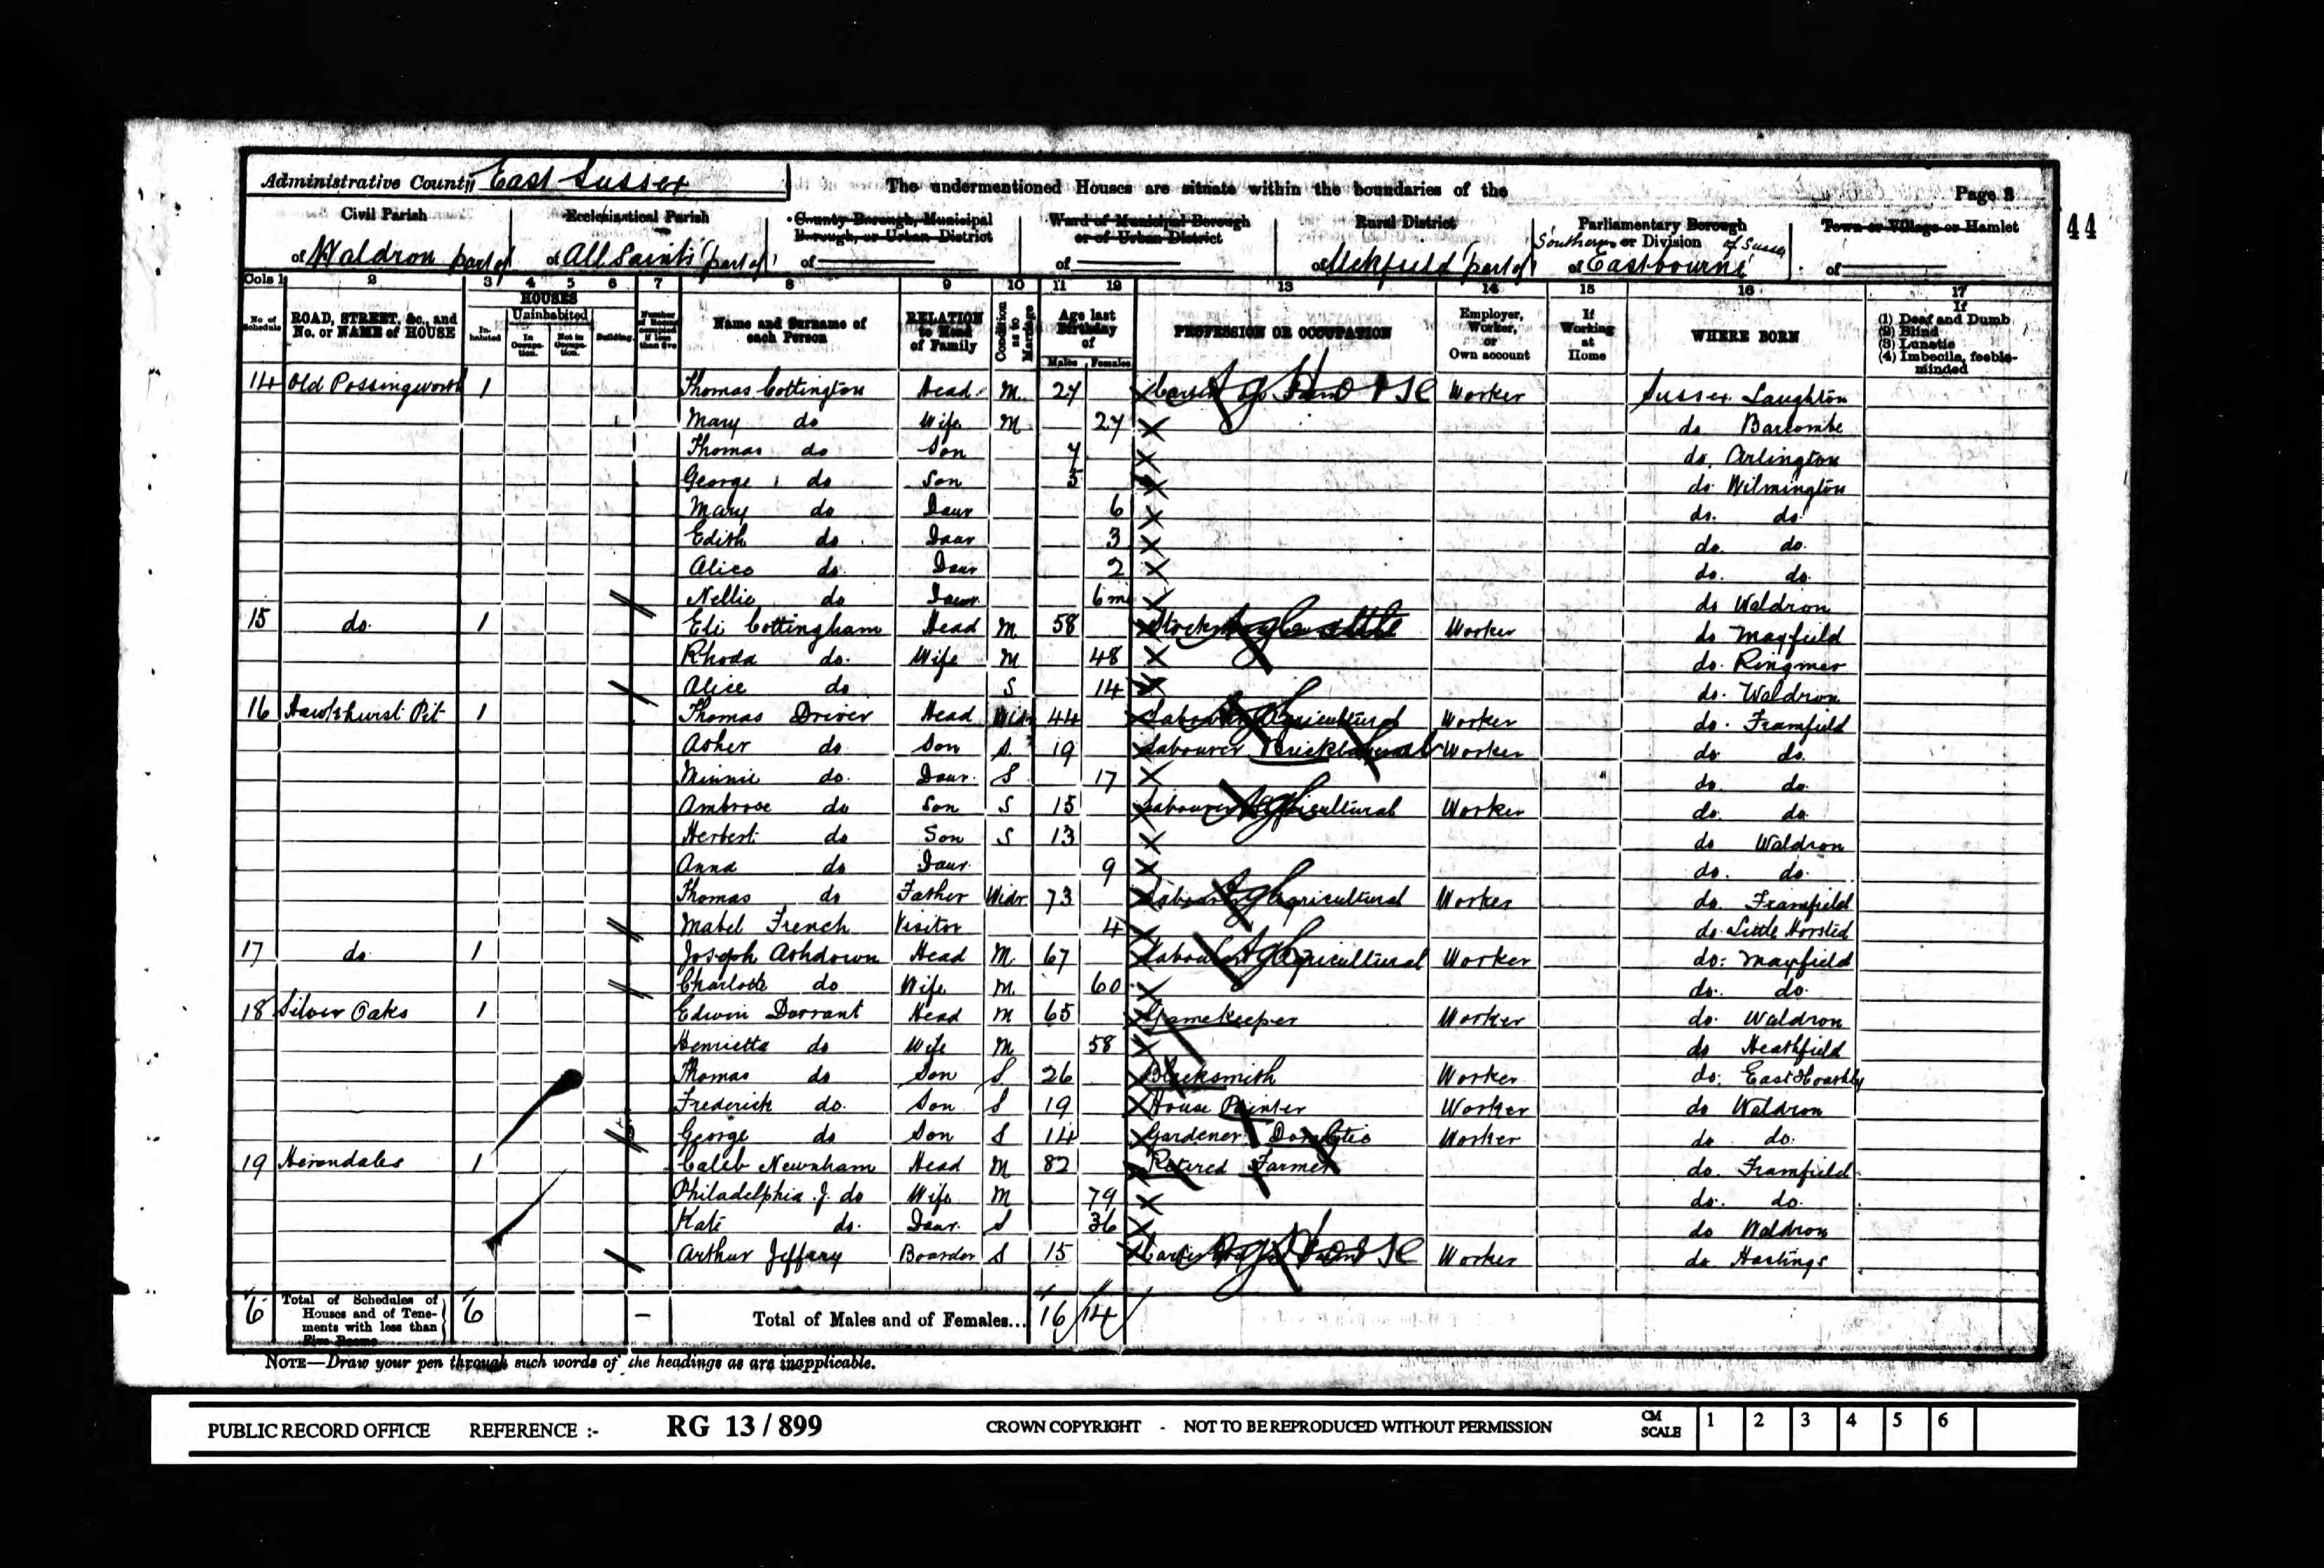 Administrative County East Sussex The undermentioned Houses are situate within the boundaries of the Page 8
44
Civil Parish Ecclesiastical Parish County Borough, Municipal Borough, or Urban District Ward of Municipal Borough or of Urban District Rural District Parliamentary Borough or Division Town or Village or Hamlet
of Waldron part of of All Saints (part of) of of of Uckfield (part of) Southern of Sussex of Eastbourne of
Cols 1 2 3 4 5 6 7 8 9 10 11 12 13 14 15 16 17
No of Schedule ROAD, STREET, &c., and No. or NAME of HOUSE HOUSES Inhabited Uninhabited In Occupation. Not in Occupation. Building. Number of Rooms occupied if less than five Name and Surname of each Person RELATION to Head of Family Condition as to Marriage Age last Birthday of Males Females PROFESSION OR OCCUPATION Employer, Worker, or Own account If Working at Home WHERE BORN If (1) Deaf and Dumb (2) Blind (3) Lunatic (4) Imbecile, feeble-minded
14 Old Possingworth 1 Thomas Cottington Head M 27 Carter on Farm Ag Horse Worker Sussex Laughton
Mary do Wife M 27 do Barcombe
Thomas do Son 7 do. Arlington
George do Son 5 do. Wilmington
Mary do Daur 6 do. do.
Edith do Daur 3 do. do.
Alice do. Daur 2 do. do.
Nellie do Daur 6 m do Waldron
15 do. 1 Eli Cottingham Head M 58 Stockman Ag Cattle Worker do Mayfield
Rhoda do. Wife M 48 do. Ringmer
Alice do S 14 do. Waldron
16 Hawkhurst Pit 1 Thomas Driver Head Widr 44 Labourer Agricultural Ag Worker do. Framfield
Asher do Son S. 19 Labourer Worker do. do.
Minnie do. Daur. S 17 do. do.
Ambrose do Son S 15 Labourer Agricultural Ag Worker do. do.
Herbert do Son S 13 do Waldron
Anna do Daur. 9 do. do.
Thomas do Father Widr 73 Labourer Agricultural Ag Worker do. Framfield
Mabel French Visitor 4 do. Little Horsted
17 do 1 Joseph Ashdown Head M. 67 Labourer Agricultural Ag Worker do. Mayfield
Charlotte do Wife M 60 do. do.
18 Silver Oaks 1 Edwin Durrant Head M 65 Gamekeeper Worker do. Waldron
Henrietta do Wife M 58 do Heathfield
Thomas do Son S 26 Blacksmith Worker do. East Hoathly
Frederick do. Son S 19 House Painter Worker do Waldron
George do Son S 14 Gardener Domestic Worker do do.
19 Herondales 1 Caleb Newnham Head M 82 Retired Farmer do. Framfield.
Philadelphia J. do Wife M 79 do. do.
Kate do. Daur. S 36 do Waldron
Arthur Jeffery Boarder S 15 Carter on Farm Ag Horse Worker do Hastings
6 Total of Schedules of Houses and of Tenements with less than Five Rooms 6 – Total of Males and of Females... 16 14
NOTE—Draw your pen through such words of the headings as are inapplicable.
PUBLIC RECORD OFFICE REFERENCE :- RG 13 / 899 CROWN COPYRIGHT - NOT TO BE REPRODUCED WITHOUT PERMISSION CM SCALE 1 2 3 4 5 6